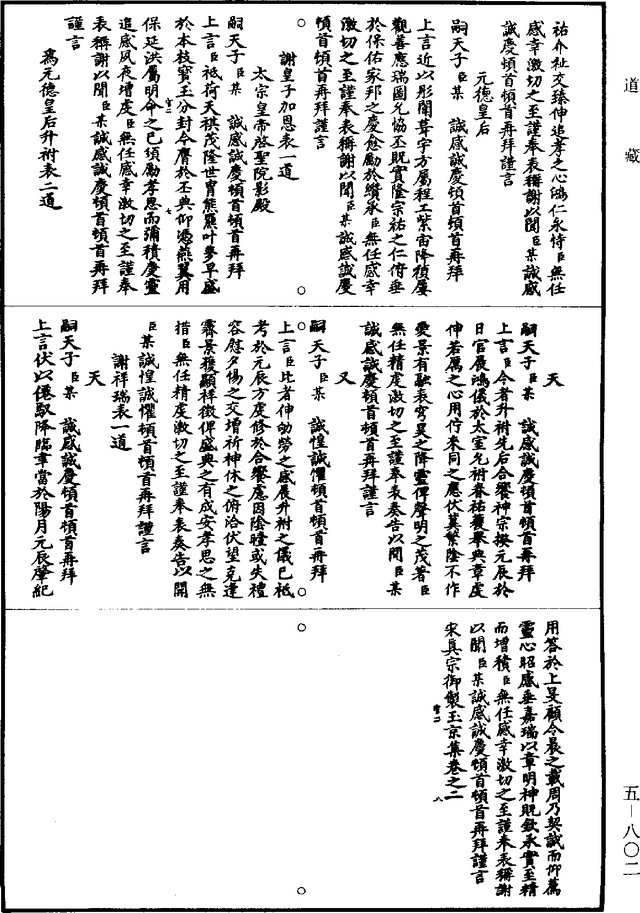 道藏
祐介祉交臻伸追孝之心鴻仁永恃臣無任
感幸激切之至謹奉表稱謝以聞臣某誠感
誠慶頓首頓首再拜謹言
元德皇后
嗣天子臣某 誠感誠慶頓首頓首再拜
上言近以彤闈葺宇方屬程工紫宙降禎屢
觀善應瑞圖允協丕貺實隆宗祐之仁俯垂
於保佑家邦之慶愈勵於纘承臣無任感幸
激切之至謹奉表稱謝以聞臣某誠感誠慶
頓首頓首再拜謹言
謝皇子加恩表一道
太宗皇帝啓聖院影殿
嗣天子臣某 誠感誠慶頓首頓首再拜
上言臣祗荷天祺茂隆世冑熊羆叶夢早盛
於本枝寳玉分封今膺於丕典仰憑燕翼用
保延洪屬明命之已須勵孝思而彌積慶靈
追感夙夜增虔臣無任感幸激切之至謹奉
表稱謝以聞臣某誠感誠慶頓首頓首再拜
謹言
爲元德皇后升祔表二道
天
嗣天子臣某 誠感誠慶頓首頓首再拜
上言臣今者升祔先后合饗神宗揆元辰於
日官展鴻儀於太室允祔春祐獲舉典章虔
伸若厲之心用佇來同之應伏冀繁陰不作
愛景有融表穹昊之降靈俾聲明之茂著臣
無任精虔激切之至謹奉表奏告以聞臣某
誠感誠慶頓首頓首再拜謹言
又
嗣天子臣某 誠惶誠懼頓首頓首再拜
上言臣比者伸劬勞之感展升祔之儀已祗
考於元辰方虔修於合饗慮因陰曀或失禮
容慰夕惕之交增祈神休之俯洽伏望克達
霽景獲顯祥徵俾盛典之有成安孝思之無
措臣無任精虔激切之至謹奉表奏告以聞
臣某誠惶誠懼頓首頓首再拜謹言
謝祥瑞表一道
天
嗣天子臣某 誠感誠慶頓首頓首再拜
上言伏以僊馭降臨幸當於陽月元辰肇紀
用答於上旻顧今晨之載周乃契誠而仰薦
靈心昭感垂嘉瑞以章明神貺欽承實至精
而增積臣無任感幸激切之至謹奉表稱謝
以聞臣某誠感誠慶頓首頓首再拜謹言
宋眞宗御製玉京集卷之二
五—八〇二